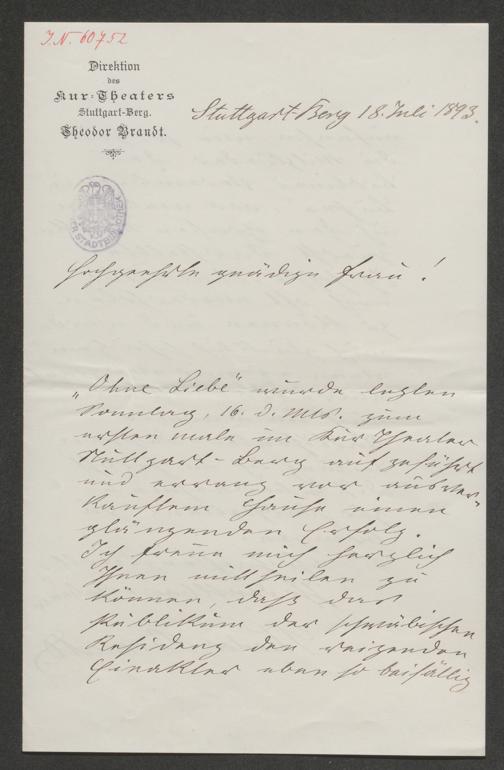 J.N. 60752
Direktion
des
Kur-Theaters
Stuttgart-Berg.
Theodor Brandt.
Stuttgart-Berg 18. Juli 1893.
STADTBIBLIOTHEK
Hochgeehrte gnädige Frau!
„Ohne Liebe" wurde letzten
Sonntag, 16. d. Mts. zum
ersten male im Kur Theater
Stuttgart-Berg aufgeführt
und errang vor ausver-
kauftem Hause einen
glänzenden Erfolg.
Ich freue mich herzlich
Ihnen mittheilen zu
können, daß das
Publikum der schwäbischen
Residenz den reizenden
Einakter eben so beifällig